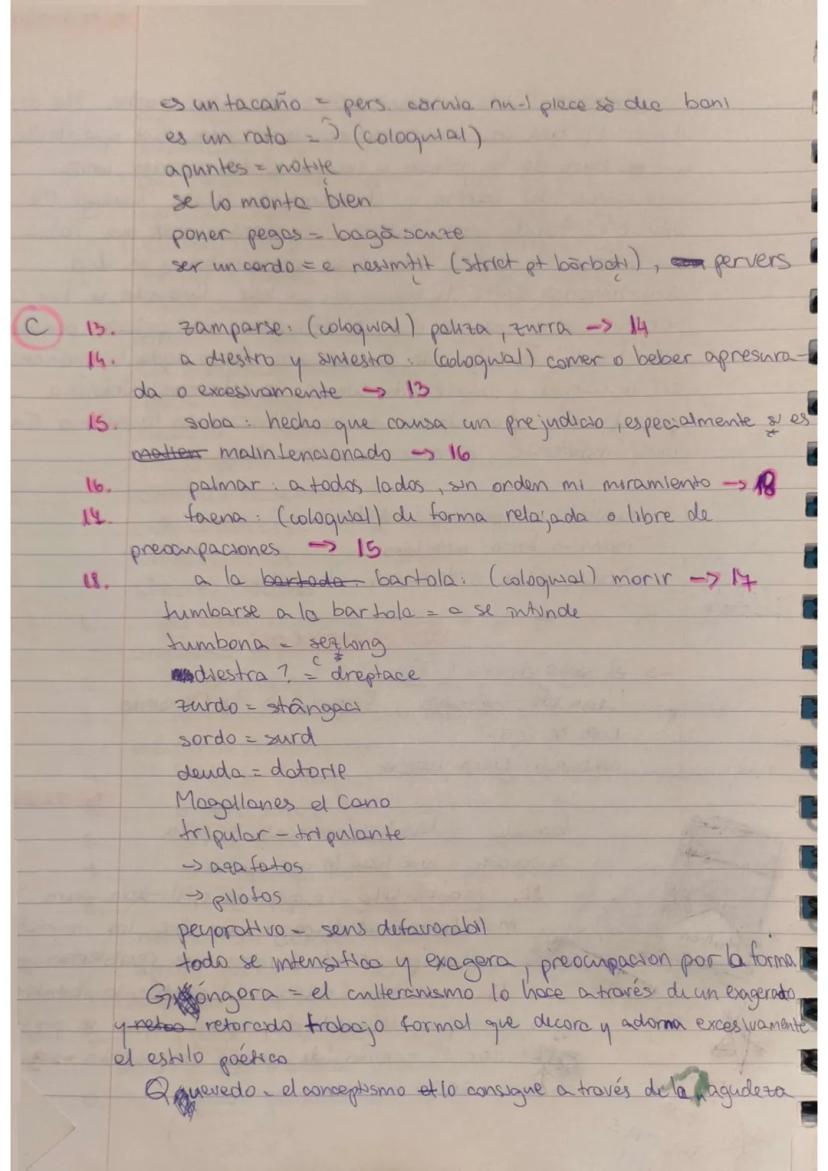 es un tacaño = pers. căruia nu-i place să dea bani
es un rata = (coloquial)
apuntes = notițe
se lo monta bien
poner pegas = bagă scuze
ser un cerdo = e nesimțit (strict pt bărbați), pervers
C 13. zamparse: (coloquial) paliza, zurra → 14
14. a diestro y siniestro: (coloquial) comer o beber apresura-
da o excesivamente → 13
15. soba: hecho que causa un prejudicio, especialmente si es
malintencionado → 16
16. palmar: a todos lados, sin orden mi miramiento → 18
17. faena: (coloquial) de forma relajada o libre de
preocupaciones → 15
18. a la bartola: (coloquial) morir → 17
tumbarse a la bartola = a se întinde
tumbona = șezlong
diestra? = dreptace
zurdo = stângaci
sordo = surd
deuda = datorie
Magallanes el Cano
tripular - tripulante
→ azafatos
→ pilotos
peyorativo - sens defavorabil
todo se intensifica y exagera, preocupacion por la forma
Góngora = el culteranismo lo hace a través de un exagerado
retorcido trabajo formal que decora y adorna excesivamente
el estilo poético
Quevedo - el conceptismo lo consigue a través de la agudeza